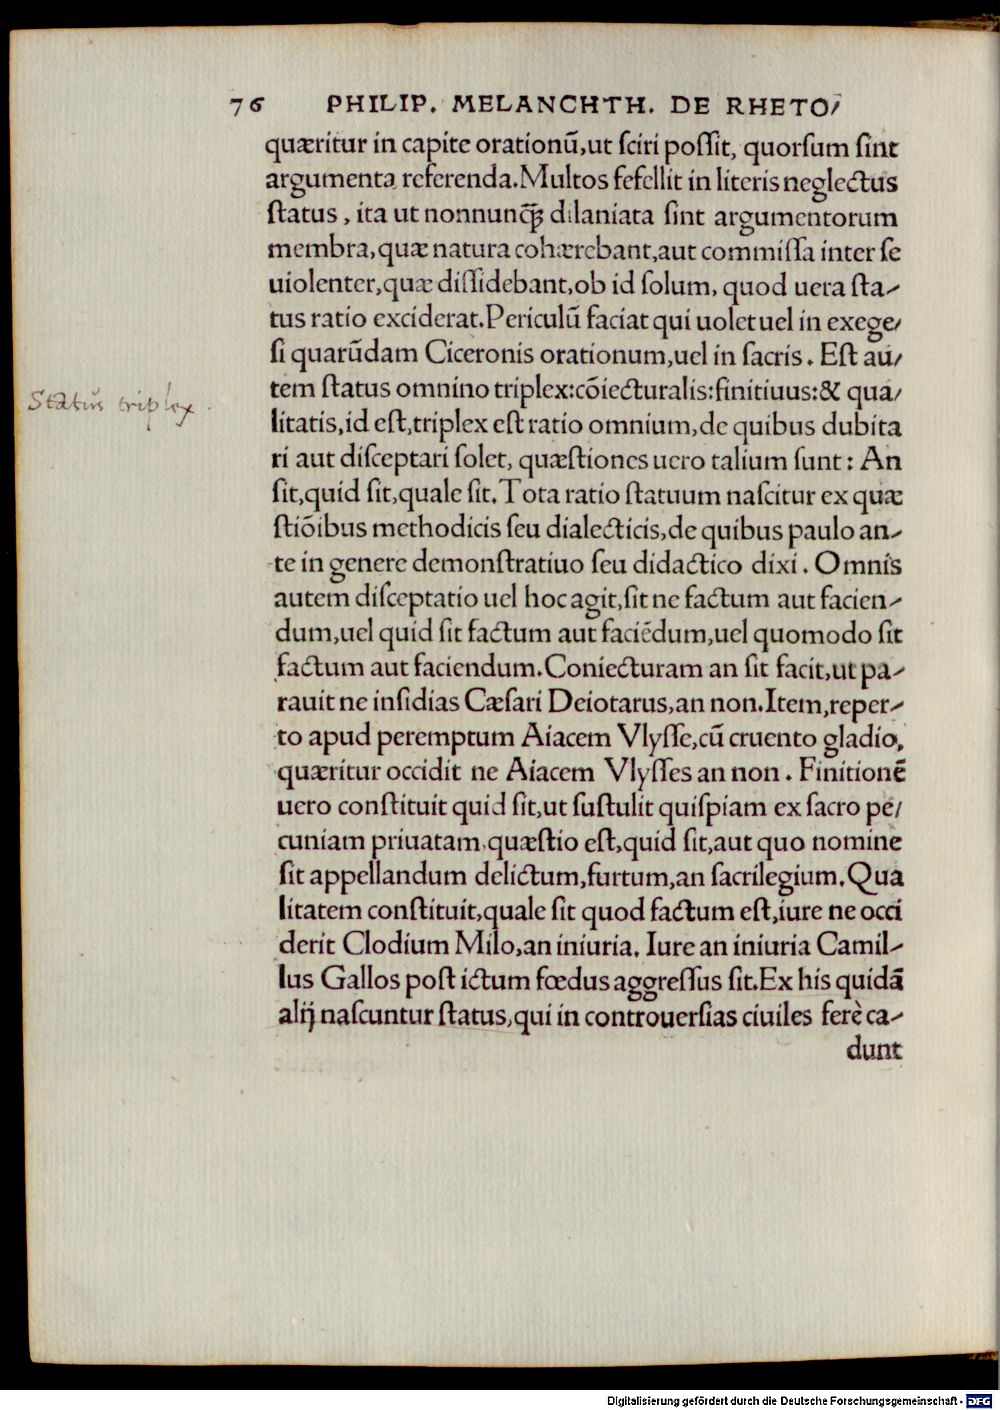 76 PHILIP. MELANCHTH. DE RHETO/
quæritur in capite orationū,ut ſciri poſſit, quorſum ſint
argumenta referenda.Multos fefellit in literis neglectus
ſtatus, ita ut nonnunq̃ꝫ dilaniata ſint argumentorum
membra,quæ natura cohærebant,aut commiſſa inter ſe
uiolenter,quæ diſſidebant,ob id ſolum, quod uera ſta-
tus ratio exciderat.Periculū faciat qui uolet uel in exege/
ſi quarūdam Ciceronis orationum,uel in ſacris. Eſt au/
tem ſtatus omnino triplex:cōiecturalis:finitiuus:& qua/
Statūs triplex.
litatis,id eſt,triplex eſt ratio omnium,de quibus dubita
ri aut diſceptari ſolet, quæſtiones uero talium ſunt: An
ſit,quid ſit,quale ſit.Tota ratio ſtatuum naſcitur ex quæ
ſtiōibus methodicis ſeu dialecticis,de quibus paulo an-
te in genere demonſtratiuo ſeu didactico dixi. Omnis
autem diſceptatio uel hoc agit,ſit ne factum aut facien-
dum,uel quid ſit factum aut faciēdum,uel quomodo ſit
factum aut faciendum.Coniecturam an ſit facit,ut pa-
rauit ne inſidias Cæſari Deiotarus,an non.Item,reper-
to apud peremptum Aiacem Vlyſſe,cū cruento gladio,
quæritur occidit ne Aiacem Vlyſſes an non. Finitionē
uero conſtituit quid ſit,ut ſuſtulit quiſpiam ex ſacro pe/
cuniam priuatam,quæſtio eſt,quid ſit,aut quo nomine
ſit appellandum delictum,furtum,an ſacrilegium.Qua
litatem conſtituit,quale ſit quod factum eſt,iure ne occi
derit Clodium Milo,an iniuria. Iure an iniuria Camil-
lus Gallos poſt ictum fœdus aggreſſus ſit.Ex his quidā
alij naſcuntur ſtatus,qui in controuerſias ciuiles ferè ca-
dunt
Digitalisierung gefördert durch die Deutsche Forschungsgemeinschaft - DFG